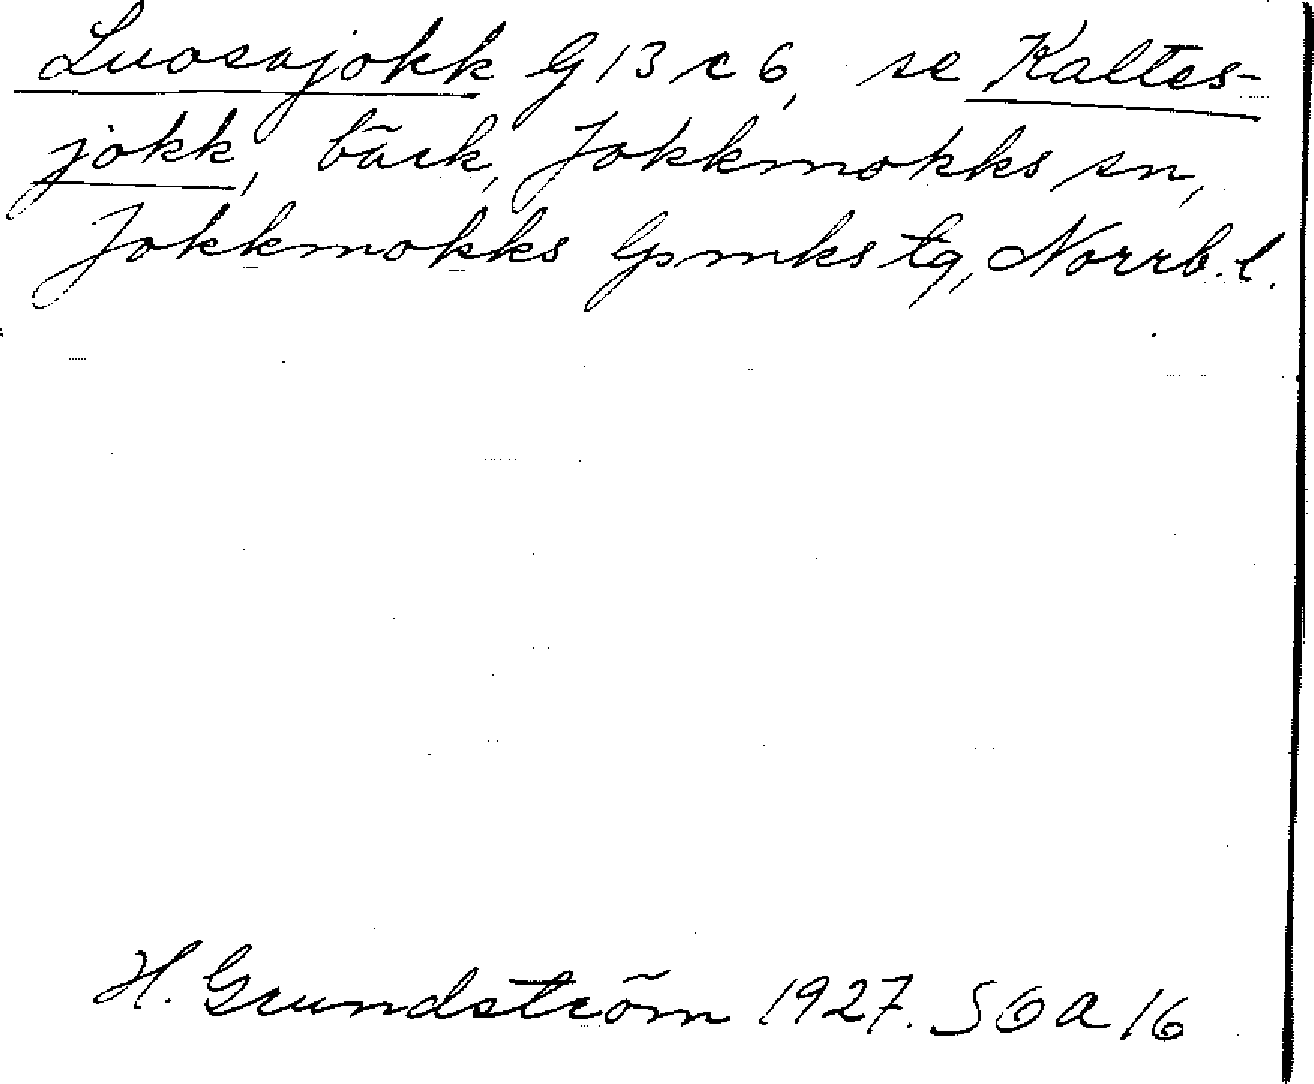 Luosajokk G 13 c 6, se Kaltes-
jokk, bäck, Jokkmokks sn,
Jokkmokks lpmks tg, Norrb. l.
H. Grundström 1927. SOA 16